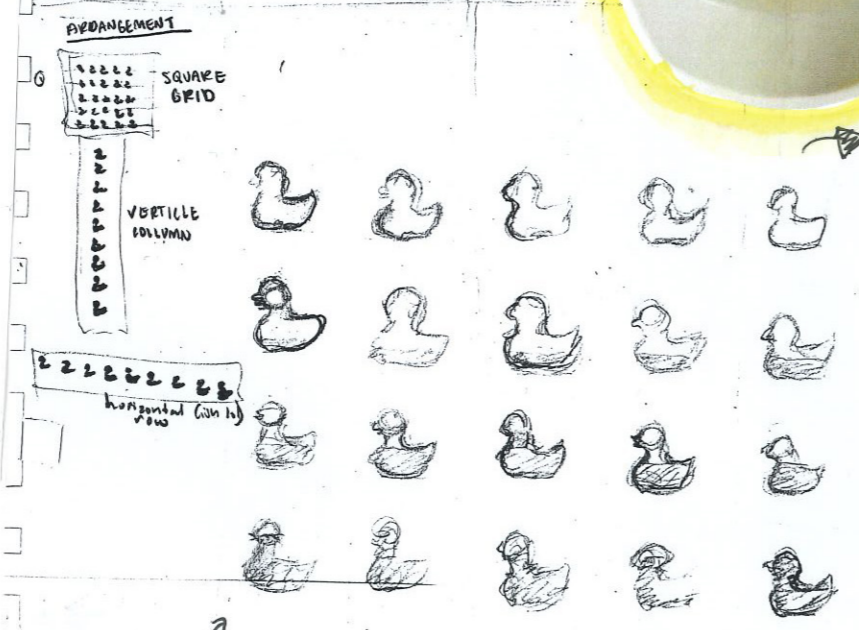 ARDANGEMENT
SQUARE
GRID
VERTICLE
COLLUMN
horizontal
row